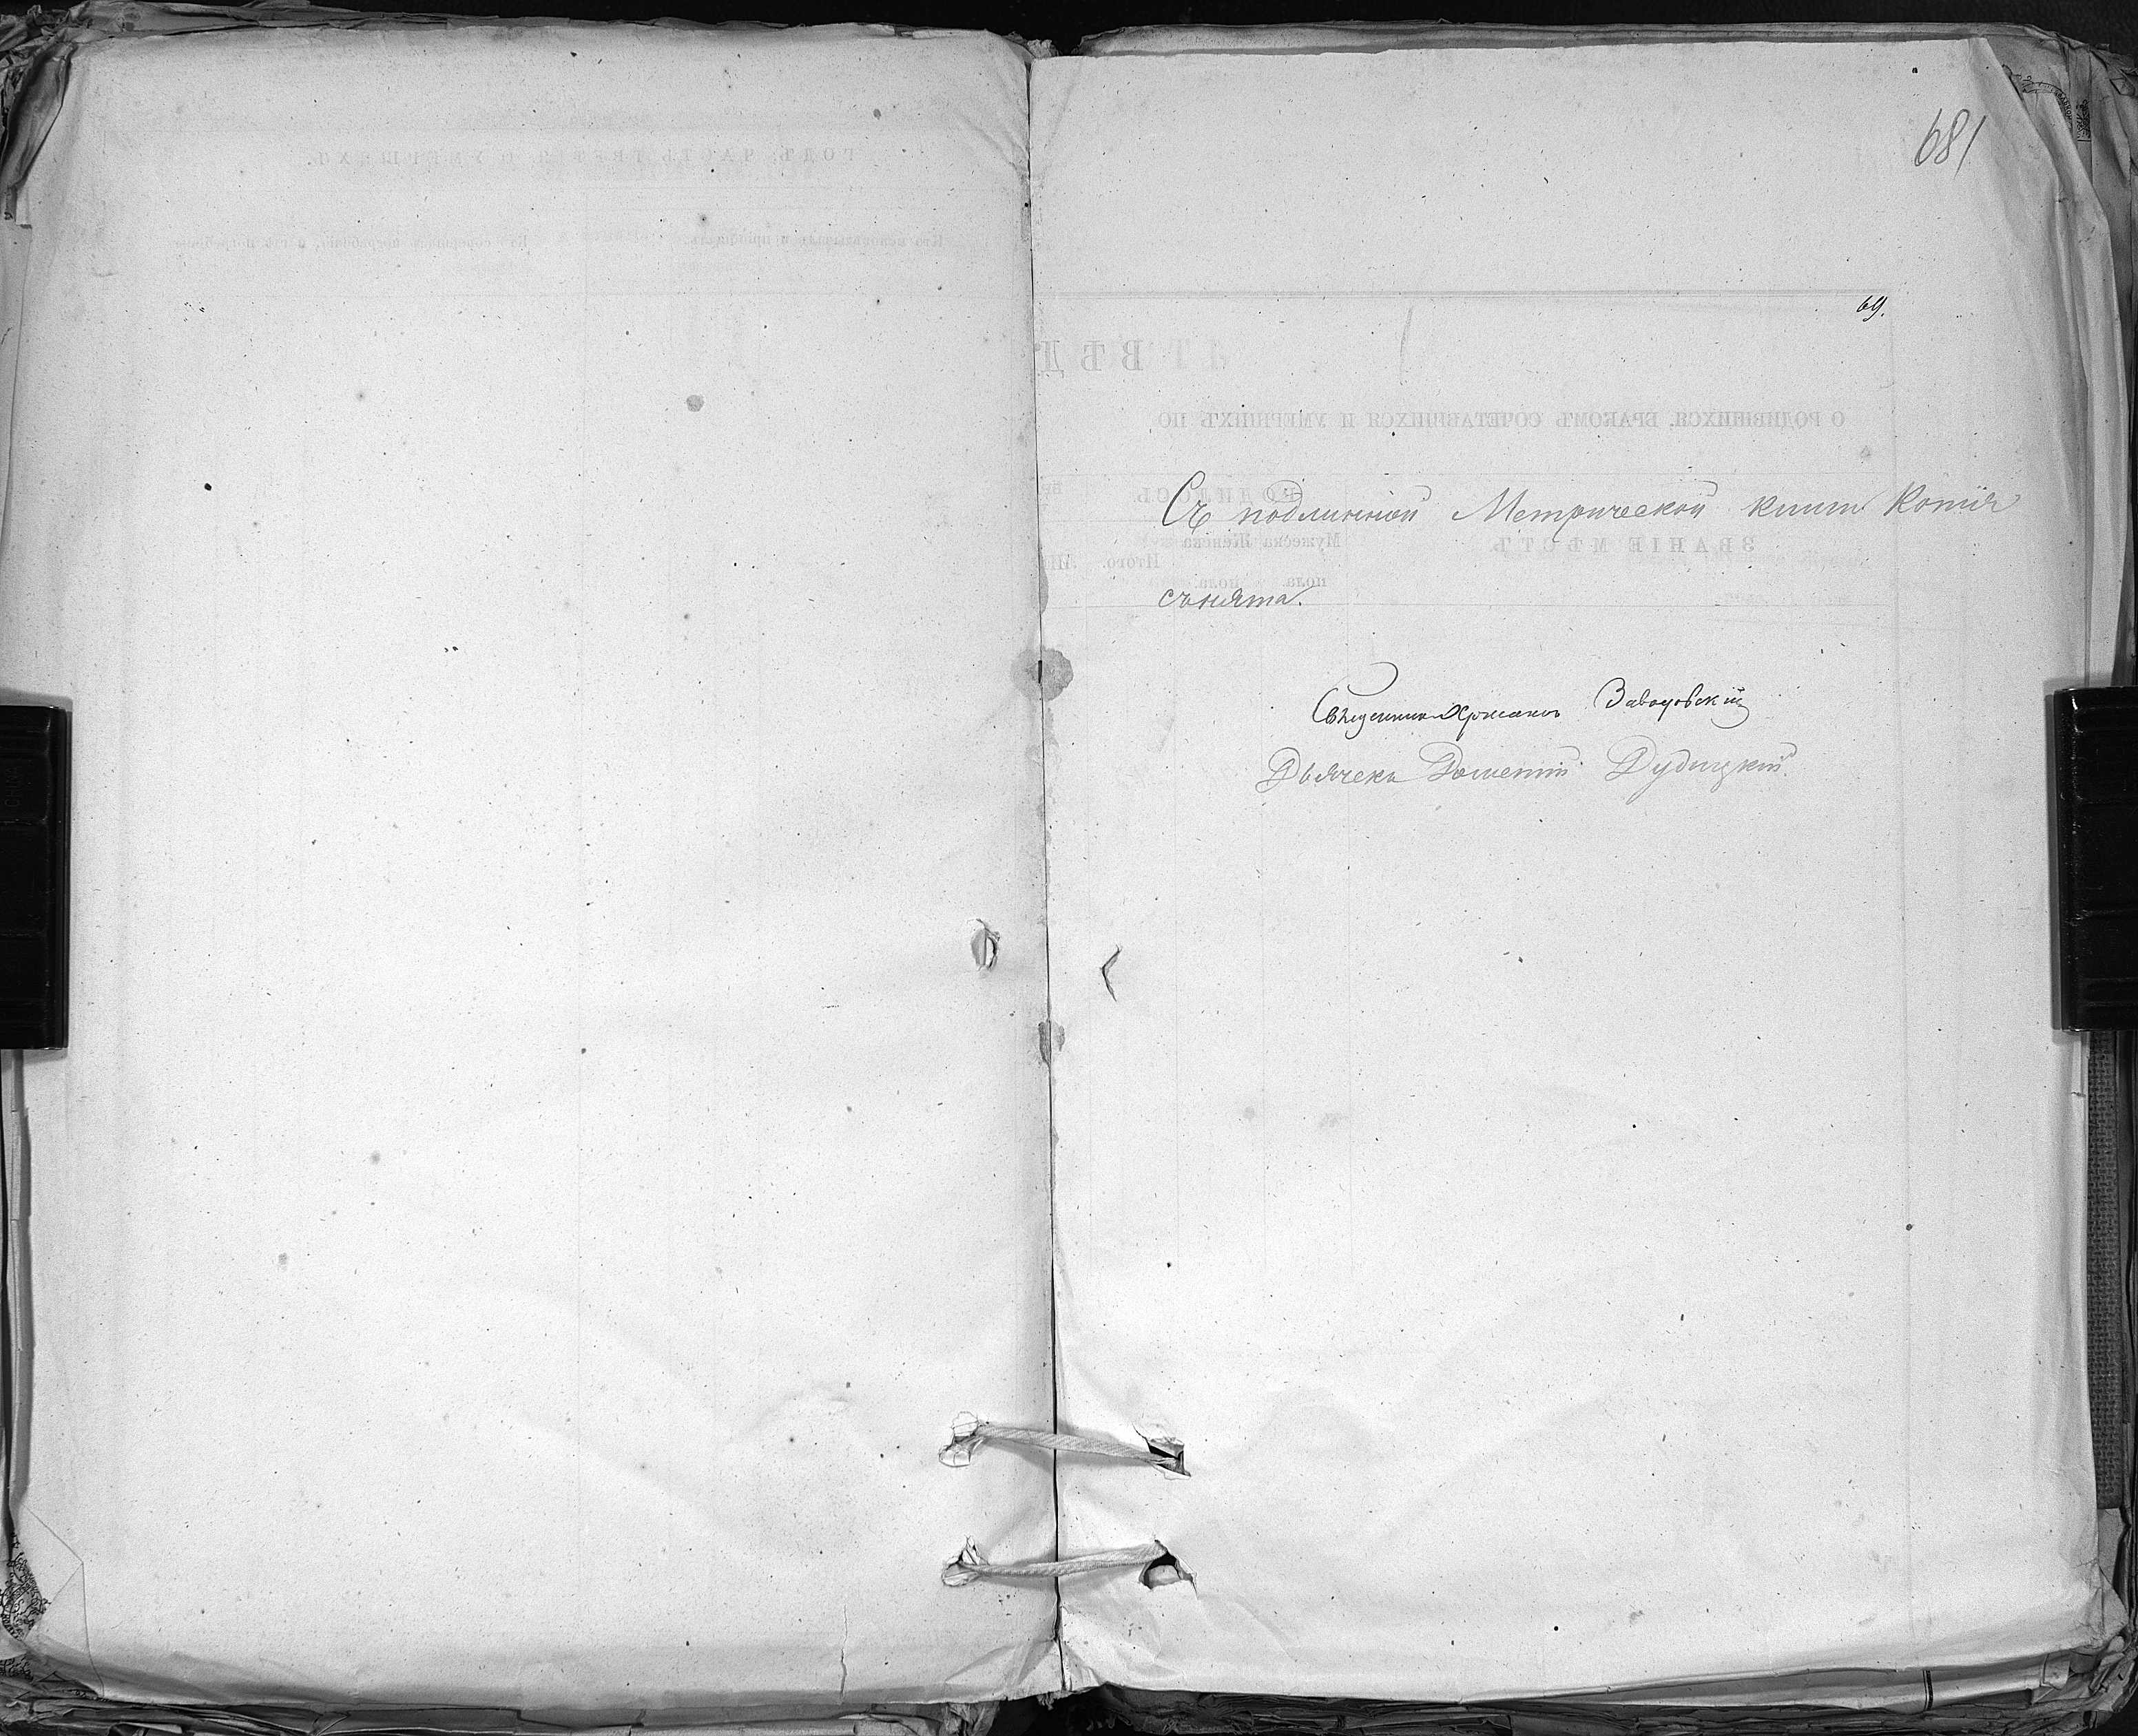 681
69.
Съ подлинной Метрической книги Копія
сънята.
Священникъ Заводовскій
Дьячекъ Дометій Дудицкій.